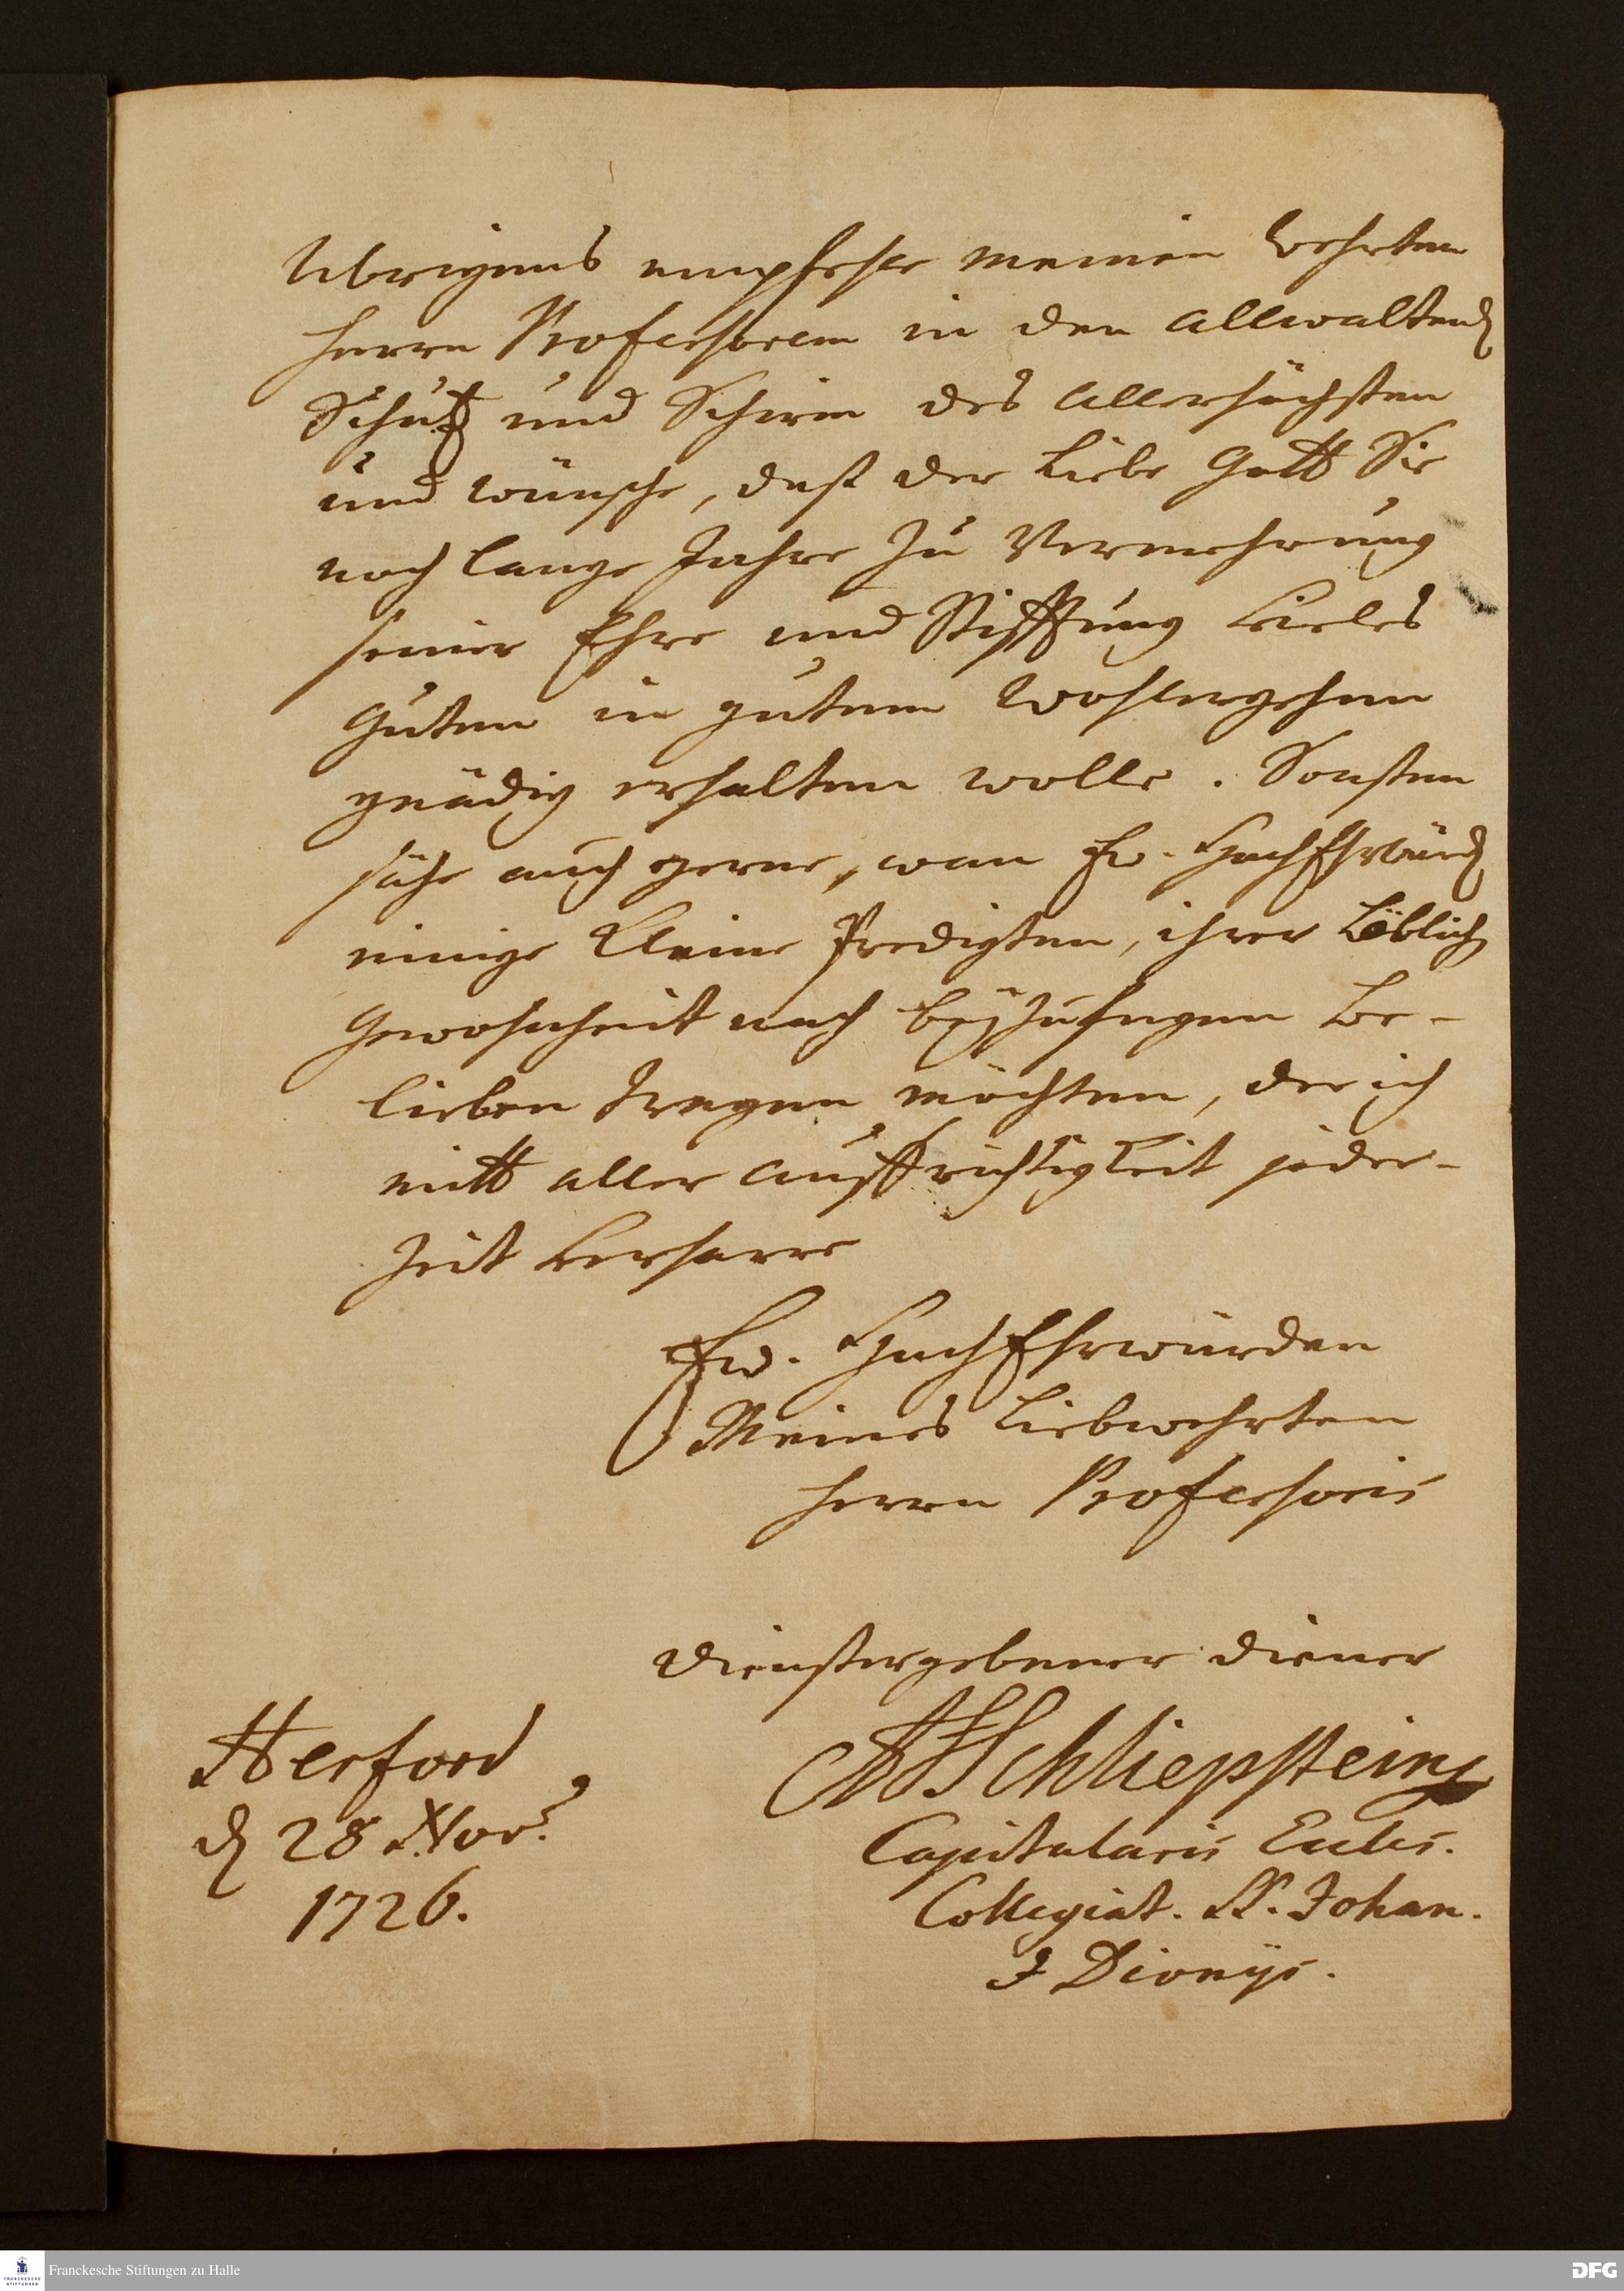 Ubrigens empfehle meinen wehrten
Herrn Professorem in den allwaltend
Schutz und Schirm des allerhöchsten
und wünsche, daß der Liebe Gott Sie
noch lange Jahre zu Vermehrung
seiner Ehre und Stifftung Vieles
Guten in gutem Wohlergehen
gnädig erhalten wolle. Sonsten
sähe auch gerne, wan Ew. HochEhrwürd
einige kleine Predigten, ihrer Löblich
Gewohnheit nach beyzulegen be-
lieben tragen möchten, der ich
mitt aller auffrichtigkeit jeder-
zeit verharre
Ew. HochEhrwürden
Meines Liebwehrten
Herrn Professoris
dienstergebener diener
Schliepstein
Herford
d 28 Nov.
1726.
Capitularis Eccles.
Collegiat. SS. Johan.
& Dionys.
Franckesche Stiftungen zu Halle
FRANCKESCHE
STIFTUNGEN
DFG